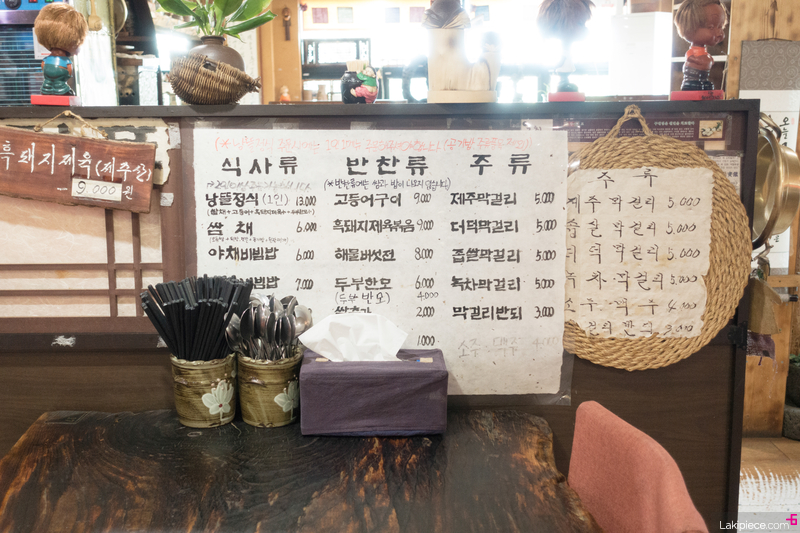 흑돼지제육(제주산)
9,000원
식사류
낭뜰정식(1인) 13,000
쌈채 6,000
야채비빔밥 6,000
비빔밥 7,000
반찬류
(*반찬류에는 쌈과 밥이 나오지 않습니다)
고등어구이 9,000
흑돼지제육볶음 9,000
해물버섯전 8,000
두부한모 6,000
(두부반모) 4,000
2,000
1,000
주류
제주막걸리 5,000
더덕막걸리 5,000
좁쌀막걸리 5,000
녹차막걸리 5,000
막걸리반되 3,000
소주 맥주 4,000
주류
제주막걸리 5,000
좁쌀막걸리 5,000
더덕막걸리 5,000
녹차막걸리 5,000
소주맥주 4,000
막걸리반되 3,000
Lakipiece.com